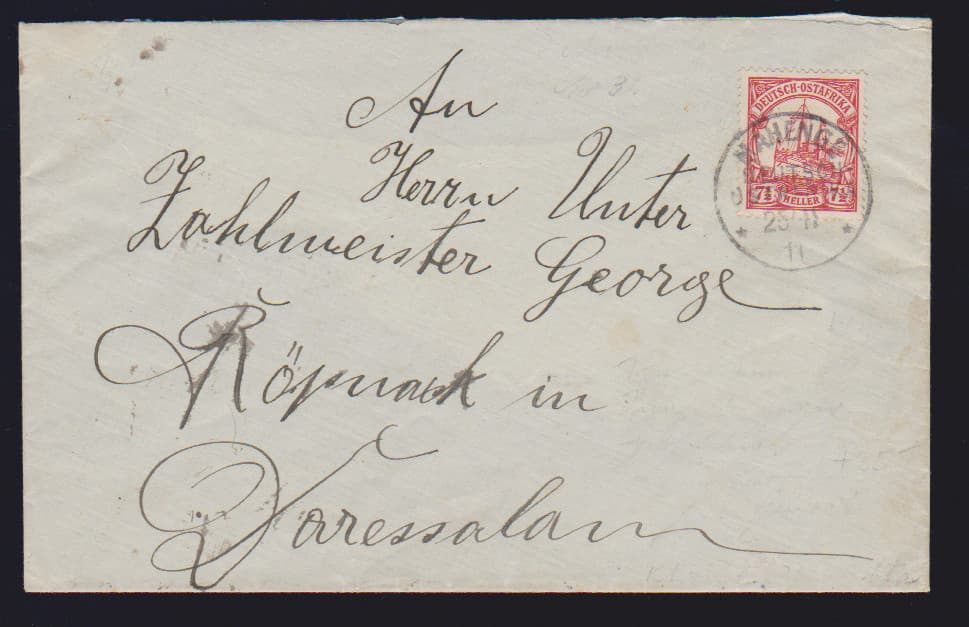 An
Herrn Unter
Zahlmeister George
Röpnack in
Daressalam
DEUTSCH-OSTAFRIKA
7½ HELLER 7½
MAHENGE
25 11
11